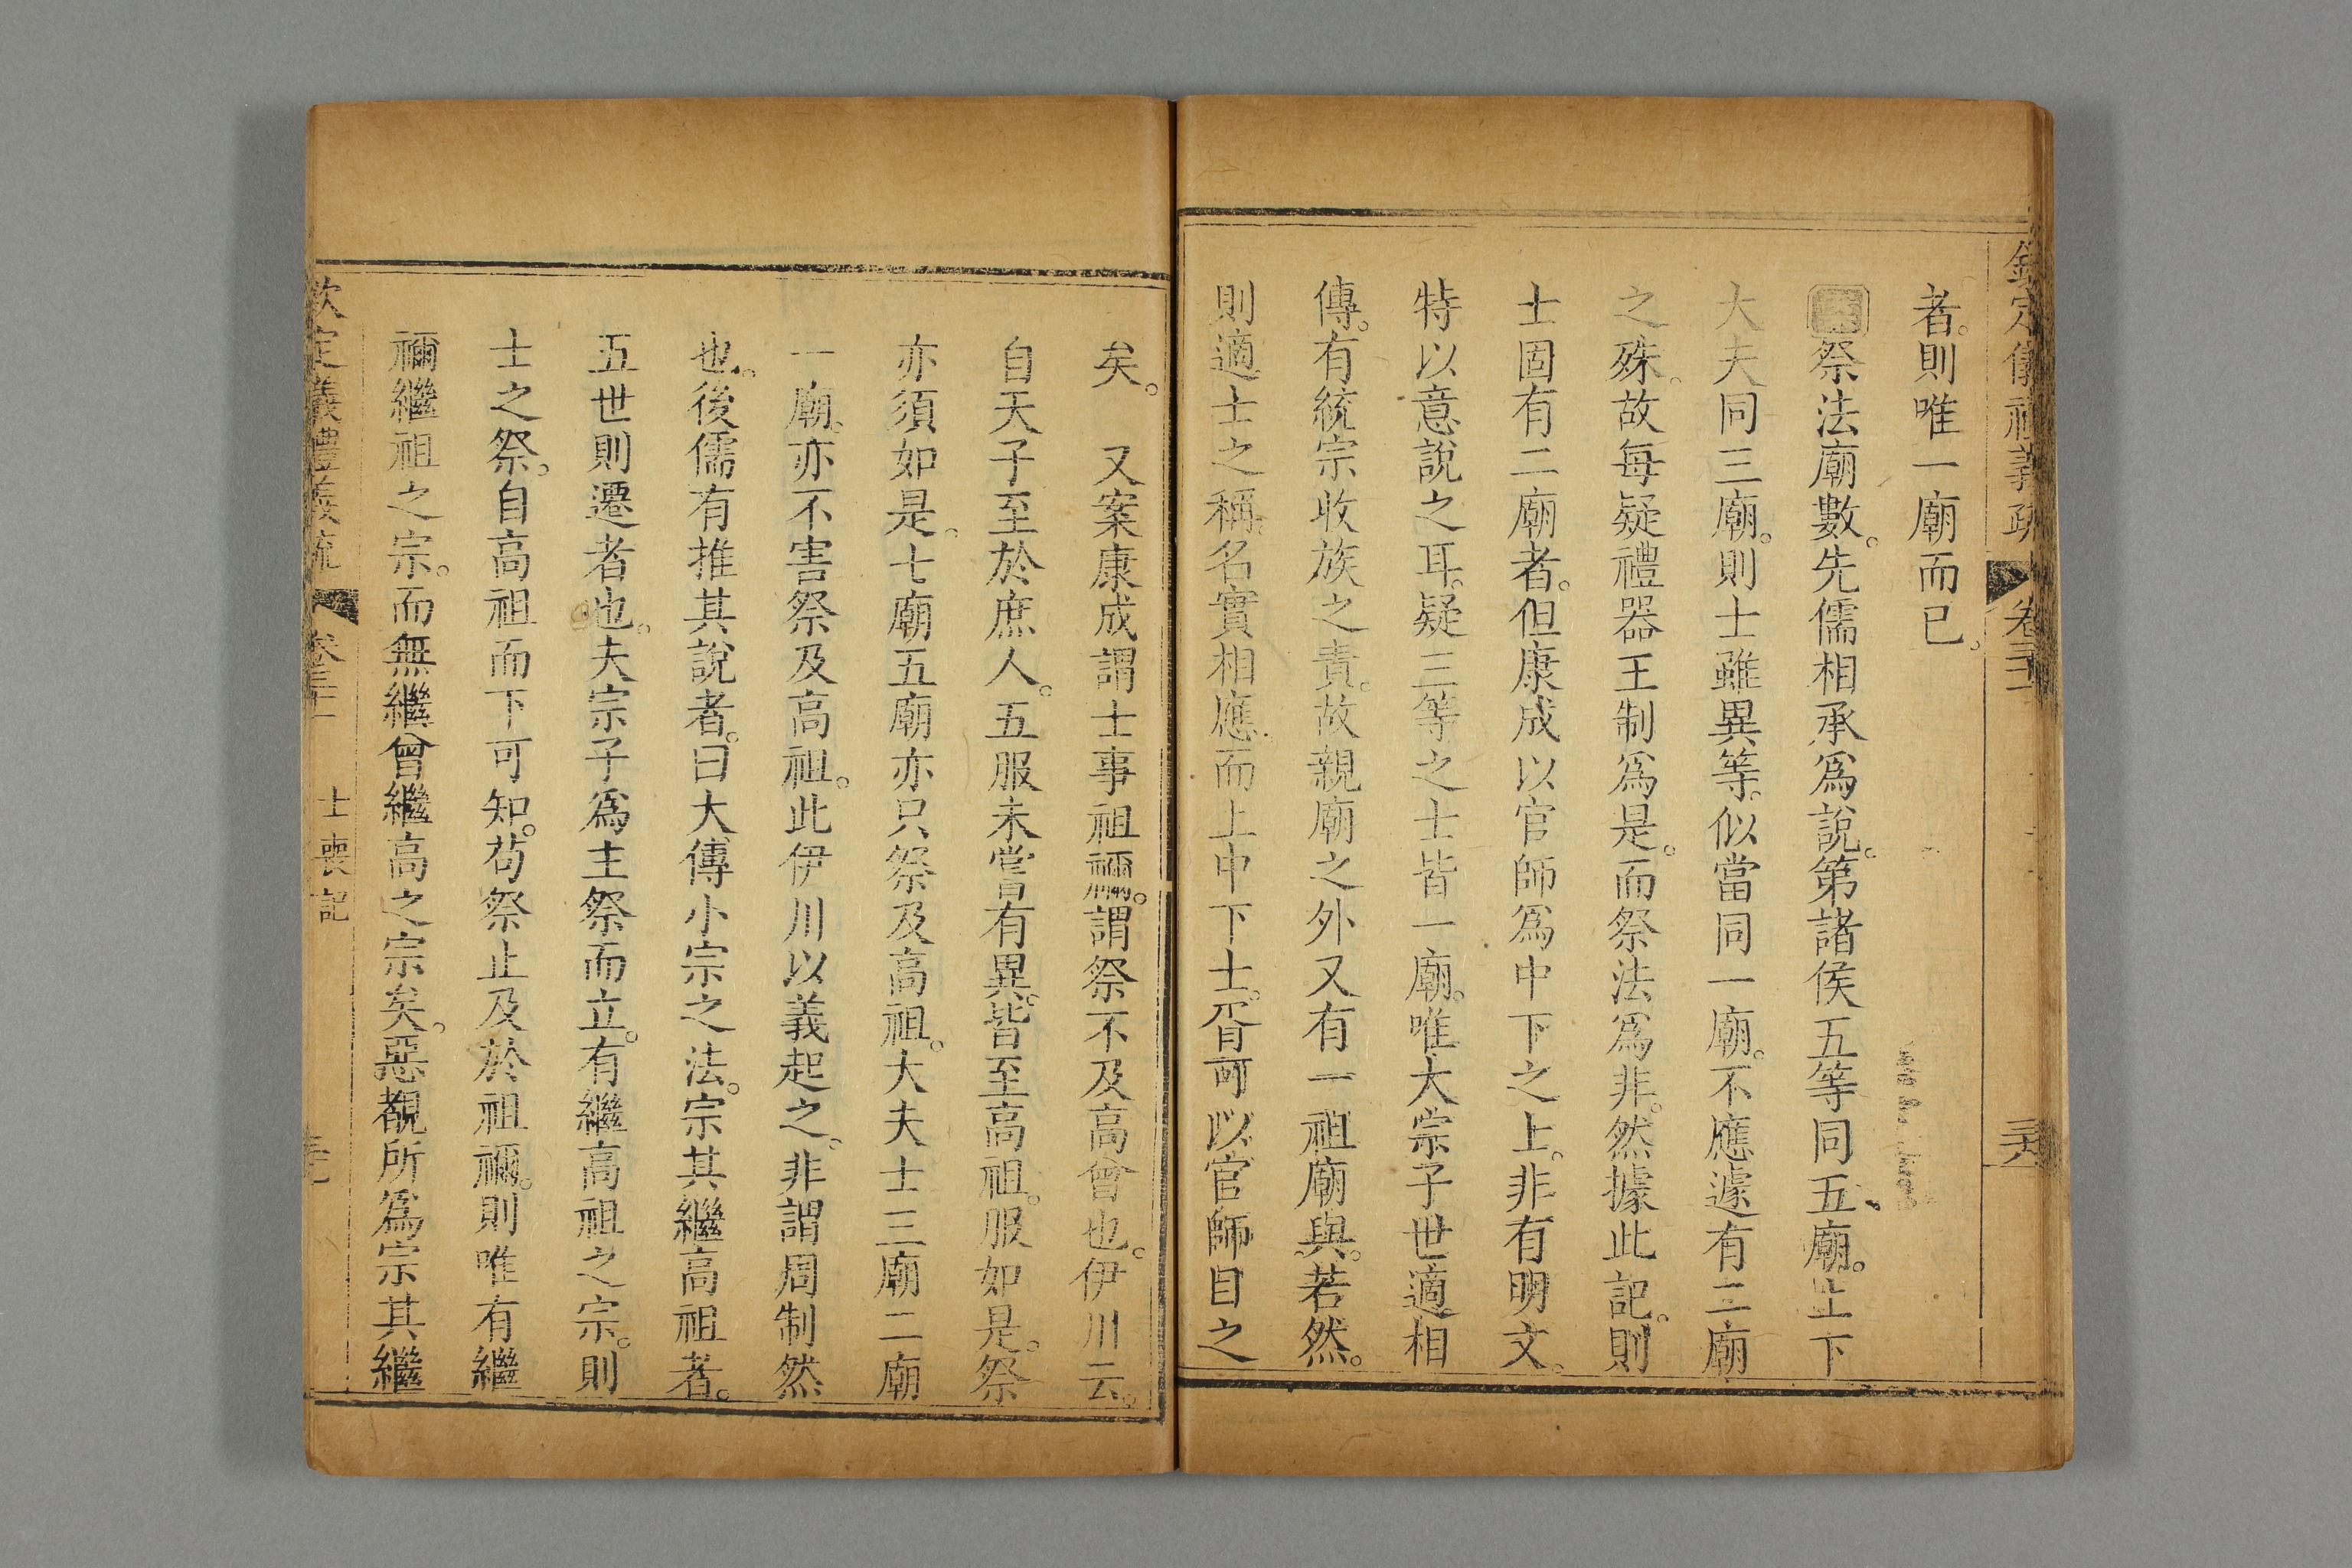 欽定儀禮義疏 卷三十一
者。則唯一廟而已。
案祭法廟數。先儒相承爲說。第諸侯五等同五廟。上下
大夫同三廟。則士雖異等。似當同一廟。不應遽有二廟
之殊。故每疑禮器王制爲是。而祭法爲非。然據此記。則
士固有二廟者。但康成以官師爲中下之上。非有明文。
特以意說之耳。疑三等之士皆一廟。唯大宗子世適相
傳。有統宗收族之責。故親廟之外又有一祖廟與。若然。
則適士之稱。名實相應。而上中下士。胥可以官師目之
矣。 又案康成謂士事祖禰。謂祭不及高曾也。伊川云。
自天子至於庶人。五服未嘗有異。皆至高祖。服如是。祭
亦須如是。七廟五廟亦只祭及高祖。大夫士三廟二廟
一廟。亦不害祭及高祖。此伊川以義起之。非謂周制然
也。後儒有推其說者。曰大傳小宗之法。宗其繼高祖者。
五世則遷者也。夫宗子爲主祭而立。有繼高祖之宗。則
士之祭。自高祖而下可知。苟祭止及於祖禰。則唯有繼
禰繼祖之宗。而無繼曾繼高之宗矣。惡覩所爲宗其繼
欽定儀禮義疏 卷三十一 士喪記